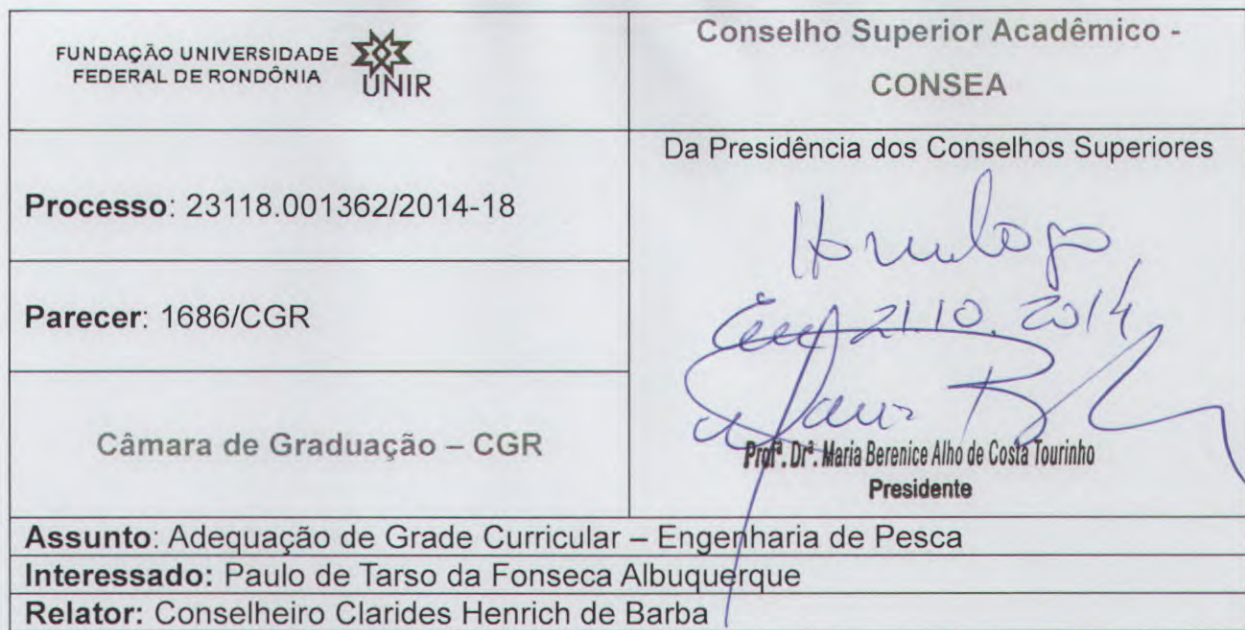 FUNDAÇÃO UNIVERSIDADE
FEDERAL DE RONDÔNIA
UNIR
Conselho Superior Acadêmico -
CONSEA
Processo: 23118.001362/2014-18
Parecer: 1686/CGR
Câmara de Graduação – CGR
Da Presidência dos Conselhos Superiores
Homologo
Em 21.10.2014
Profª. Drª. Maria Berenice Alho de Costa Tourinho
Presidente
Assunto: Adequação de Grade Curricular – Engenharia de Pesca
Interessado: Paulo de Tarso da Fonseca Albuquerque
Relator: Conselheiro Clarides Henrich de Barba